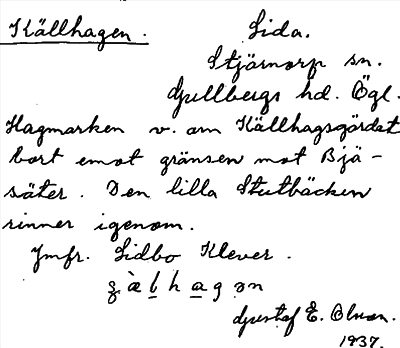 Källhagen. Sida.
Stjärnorp sn.
Gullbergs hd. Ögl.
Hagmarken v. om Källhagsgärdet
bort emot gränsen mot Bjä-
säter. Den lilla Stutbäcken
rinner igenom.
Jmfr. Sidbo Klever.
Gustaf E. Olson.
1937.